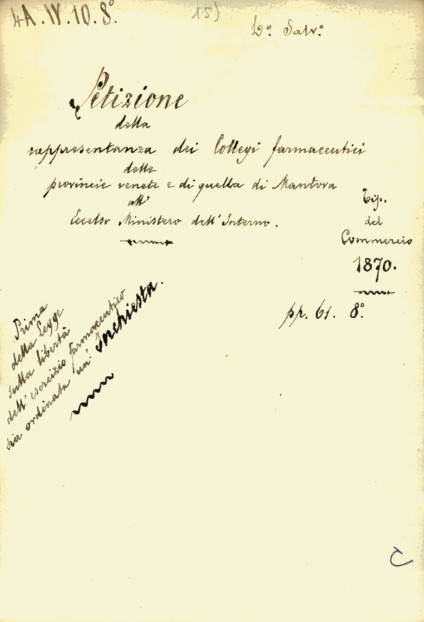 4A.IV.10.8°.
15)
D°. Salv°.
Petizione
della
rappresentanza dei Collegi farmaceutici
delle
provincie venete e di quella di Mantova
all'
Eccelso Ministero dell'Interno.
Tip.
del
Commercio
1870.
pp. 61. 8°.
Prima
della Legge
sulla libertà
dell'esercizio farmaceutico
sia ordinata un' Inchiesta.